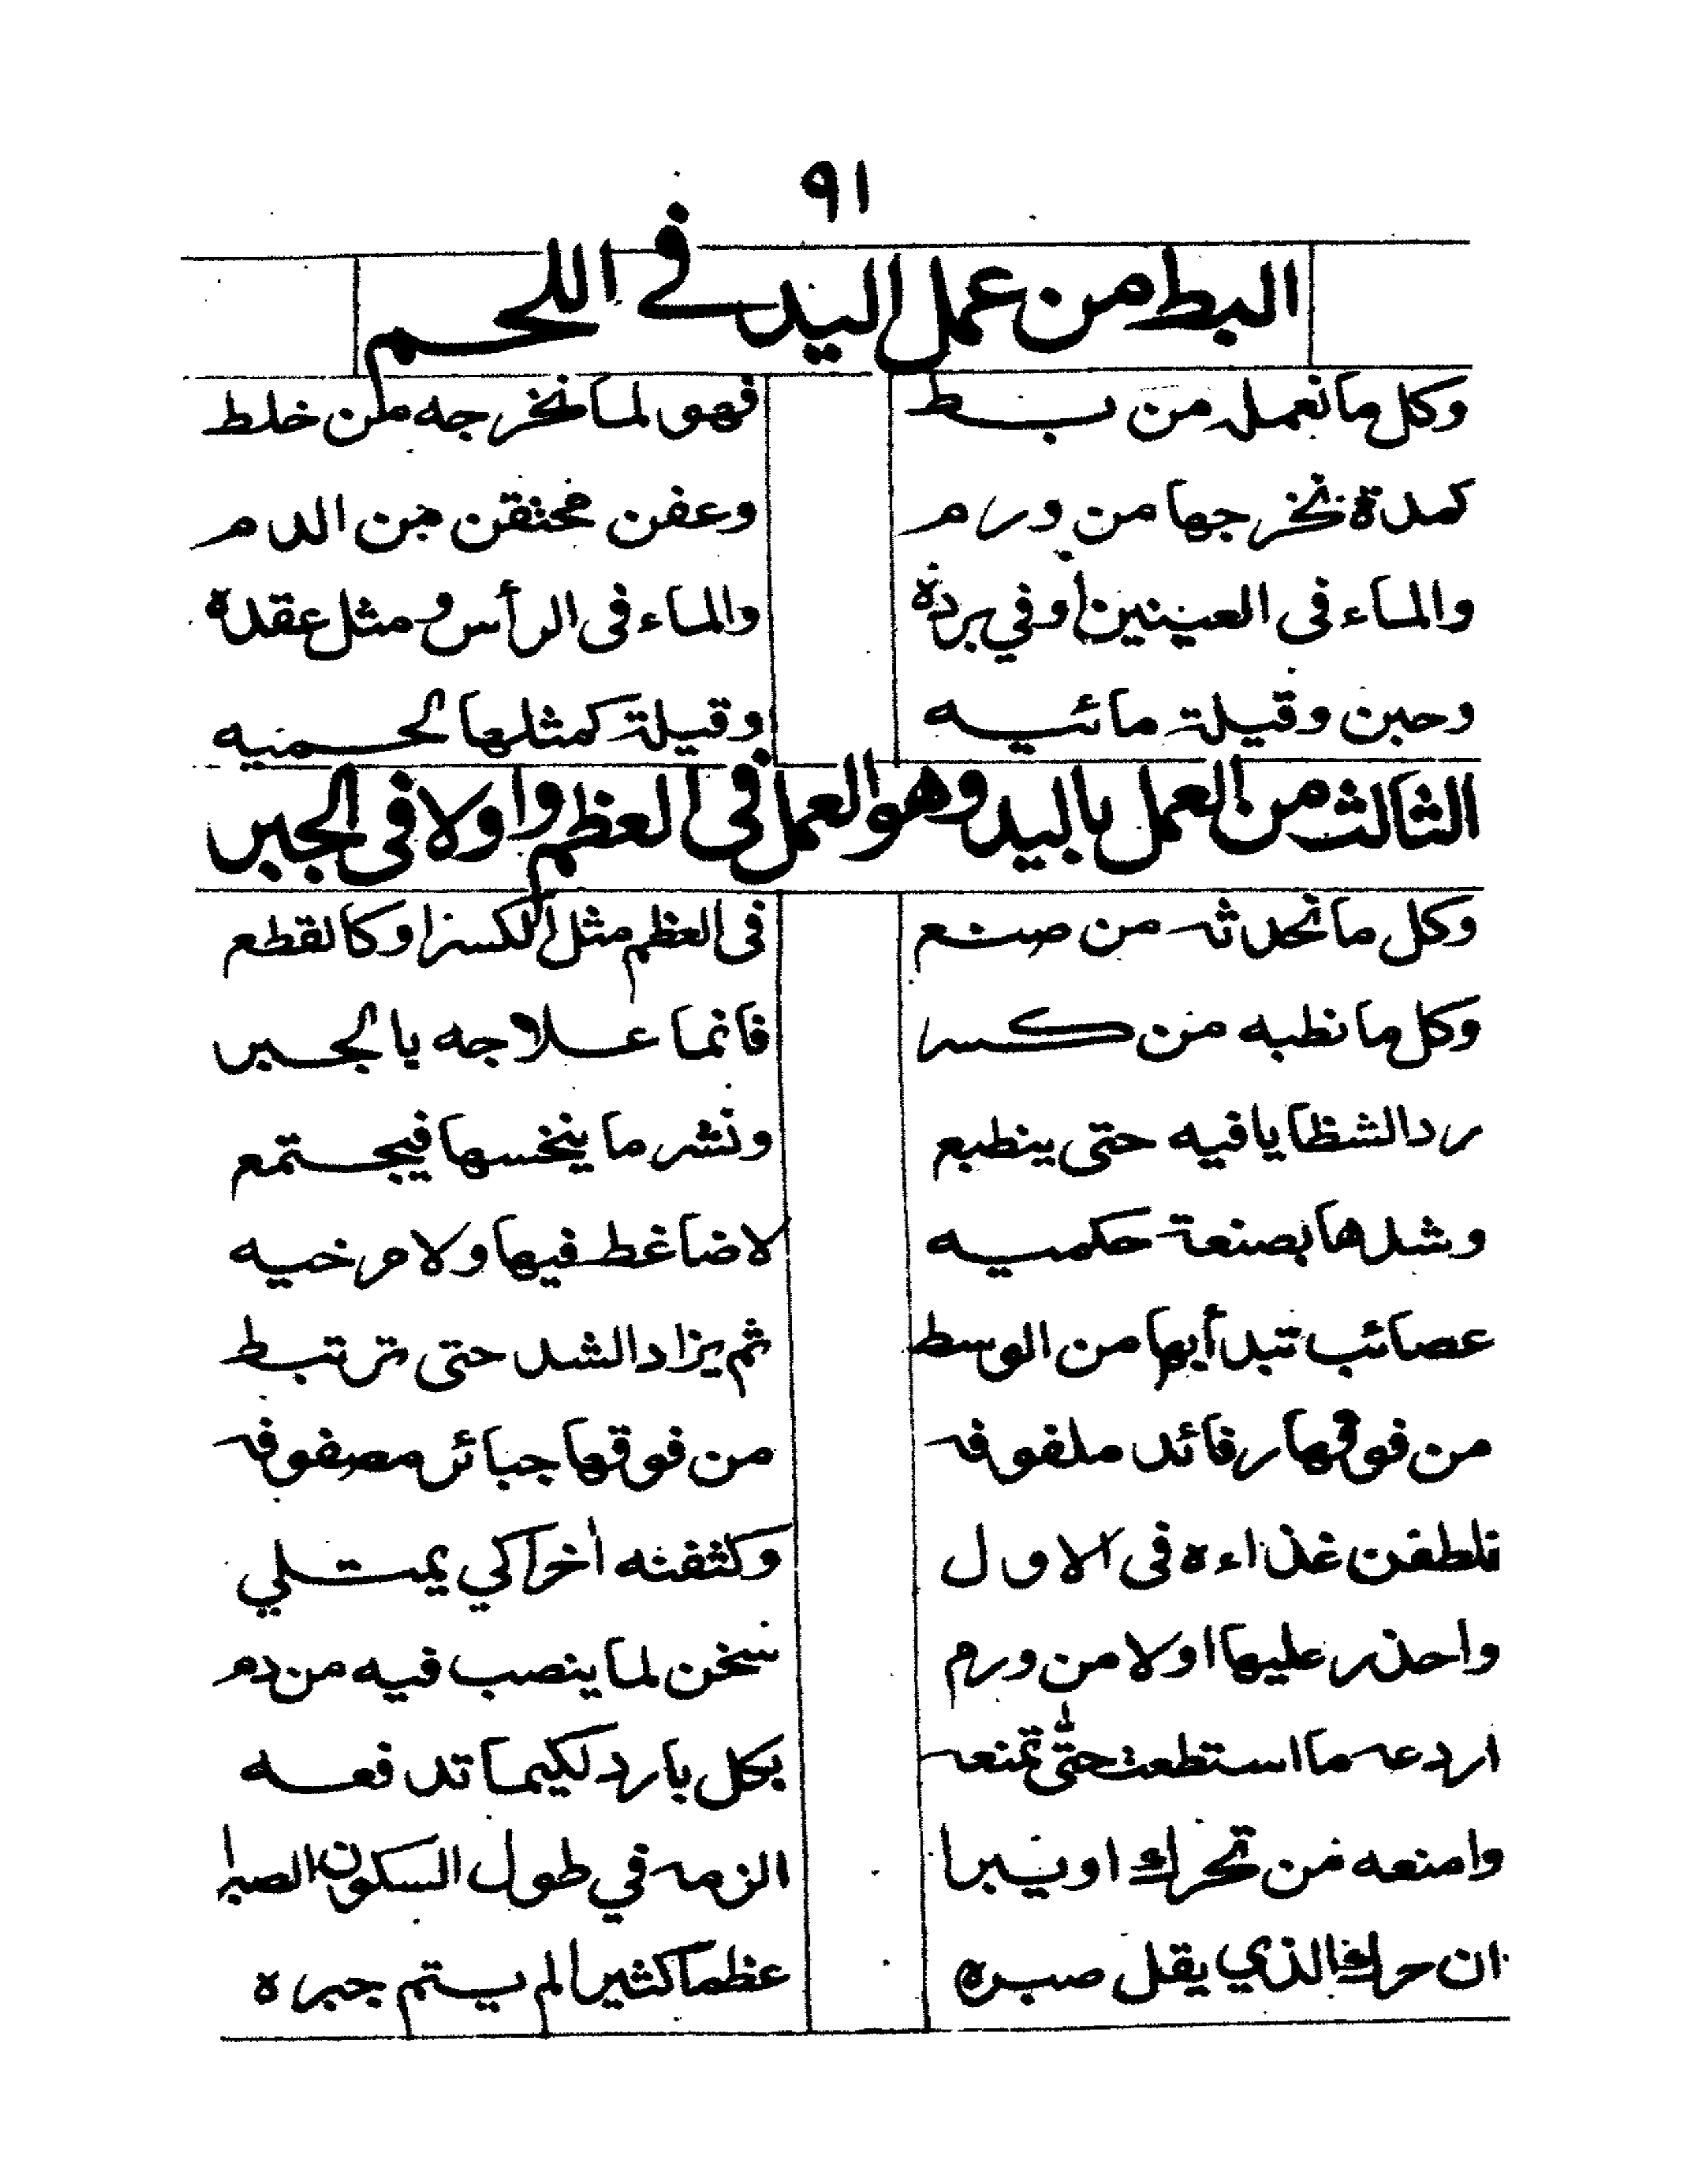 ٩١
البط من عمل اليد في اللحم
وكل ما نعمله من بسط فهو لما نخرجه من خلط
كمدة نخرجها من ورم وعفن محتقن من الدم
والماء فى العينين أو في بردة والماء فى الرأس ومثل عقده
وحبن وقيلة مائيه وقيلة كمثلها لحميه
الثالث من العمل باليد وهو العمل فى العظم واولا فى الجبر
وكل ما نحدثه من صنع فى العظم مثل الكسر او كالقطع
وكل ما نطبه من كسر فانما علاجه بالجبر
رد الشظايا فيه حتى ينطبع ونشر ما ينخسها فيجتمع
وشدها بصنعة حكميه لا ضاغط فيها ولا مرخيه
عصائب تبدأ بها من الوسط ثم يزاد الشد حتى ترتبط
من فوقها رفائد ملفوفه من فوقها جبائر مصفوفه
نلطفن غذاءه فى الاول وكثفنه أخرا كي يمتلي
واحذر عليها اولا من ورم سخن لما ينصب فيه من دم
اردعه ما استطعت حتى تمنعه بكل بارد لكيما تدفعه
وامنعه من تحرك او يبرا الزمه في طول السكون الصبرا
ان حرك الذي يقل صبره عظما كثيرا لم يستم جبره